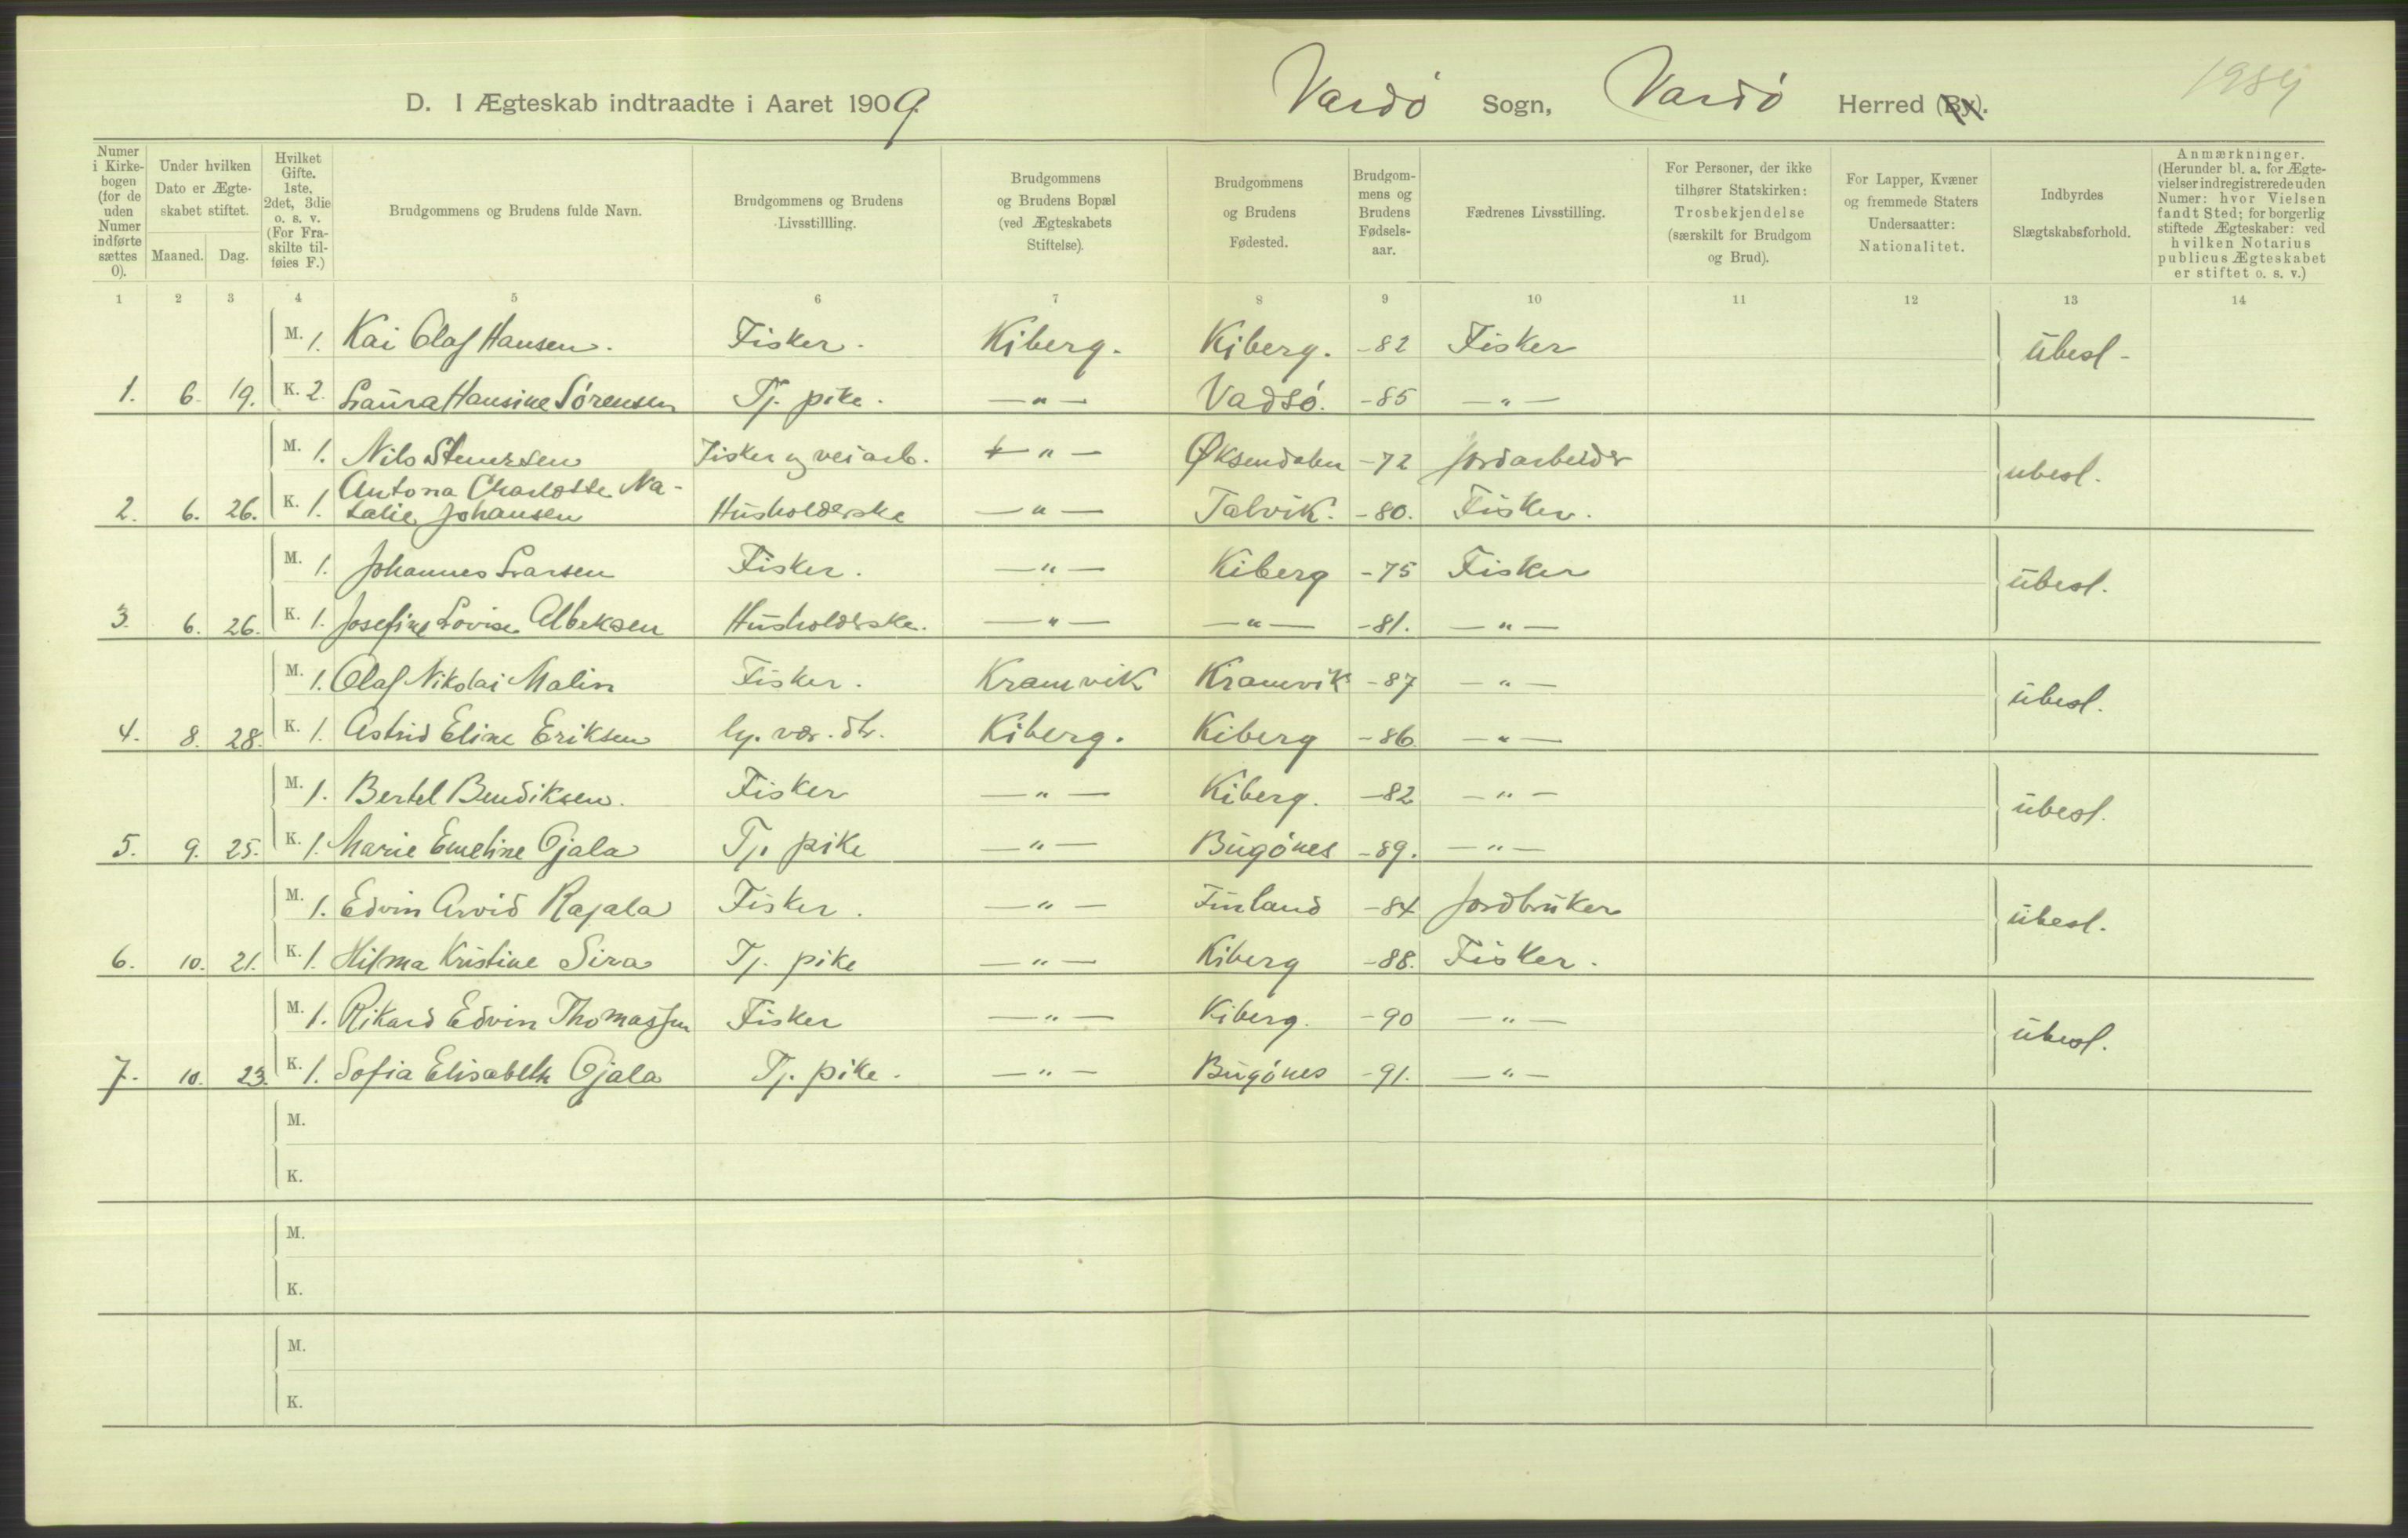 D. I Ægteskab indtraadte i Aaret 1909. Vardø Sogn, Vardø Herred (By). 1984
Numer i Kirkebogen (for de uden Numer indførte sættes 0).
Under hvilken Dato er Ægteskabet stiftet.
Maaned. Dag.
Hvilket Gifte. 1ste, 2det, 3die o. s. v. (For Fraskilte tilføies F.)
Brudgommens og Brudens fulde Navn.
Brudgommens og Brudens Livsstillling.
Brudgommens og Brudens Bopæl (ved Ægteskabets Stiftelse).
Brudgommens og Brudens Fødested.
Brudgommens og Brudens Fødselsaar.
Fædrenes Livsstilling.
For Personer, der ikke tilhører Statskirken: Trosbekjendelse (særskilt for Brudgom og Brud).
For Lapper, Kvæner og fremmede Staters Undersaatter: Nationalitet.
Indbyrdes Slægtskabsforhold.
Anmærkninger. (Herunder bl. a. for Ægtevielser indregistrerede uden Numer: hvor Vielsen fandt Sted; for borgerlig stiftede Ægteskaber: ved hvilken Notarius publicus Ægteskabet er stiftet o. s. v.)
1 2 3 4 5 6 7 8 9 10 11 12 13 14
M. 1. Kai Olaf Hansen. Fisker. Kiberg. Kiberg. -82 Fisker ubesl-
1. 6. 19. K. 2. Laura Hansine Sørensen Tj. pike. —"— Vadsø. -85 —"—
M. 1. Nils Stenersen Fisker og veiarb. —"— Øksendalen -72 Jordarbeider ubesl.
Antona Charlotte Na-
2. 6. 26. K. 1. talie Johansen Husholderske —"— Talvik. -80. Fisker.
M. 1. Johannes Larsen Fisker. —"— Kiberg -75 Fisker ubesl.
3. 6. 26. K. 1. Josefine Lovise Albeksen Husholderske. —"— —"— -81. —"—
M. 1. Olaf Nikolai Malin Fisker. Kramvik Kramvik -87 —"— ubesl.
4. 8. 28. K. 1. Astrid Eline Eriksen Kiberg. Kiberg -86 —"—
M. 1. Bertel Bendiksen. Fisker —"— Kiberg. -82 —"— ubesl.
5. 9. 25. K. 1. Marie Emeline Ojala Tj. pike —"— Bugønes -89. —"—
M. 1. Edvin Arvid Rajala Fisker. —"— Finland -84 Jordbruker ubesl.
6. 10. 21. K. 1. Hilma Kristine Sira Tj. pike —"— Kiberg -88. Fisker.
M. 1. Rikard Edvin Thomassen Fisker —"— Kiberg. -90 —"— ubesl.
7. 10. 23. K. 1. Sofia Elisabeth Ojala Tj. pike. —"— Bugønes -91. —"—
M.
K.
M.
K.
M.
K.